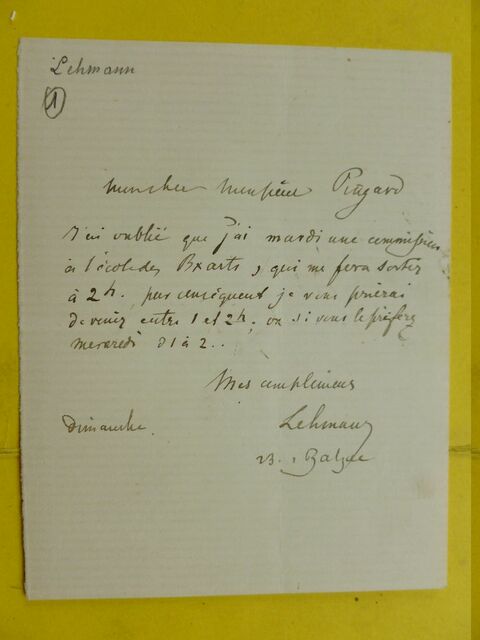 Lehmann
1
mon cher Monsieur Pingard
J'ai oublié que j'ai mardi une commission
à l'école des Bxarts, qui me fera sortir
à 2h. par conséquent je vous prierai
de venir entre 1 et 2h, ou si vous le préférez
mercredi d 1 à 2..
Mes compliments
Dimanche. Lehmann
23., Balzac